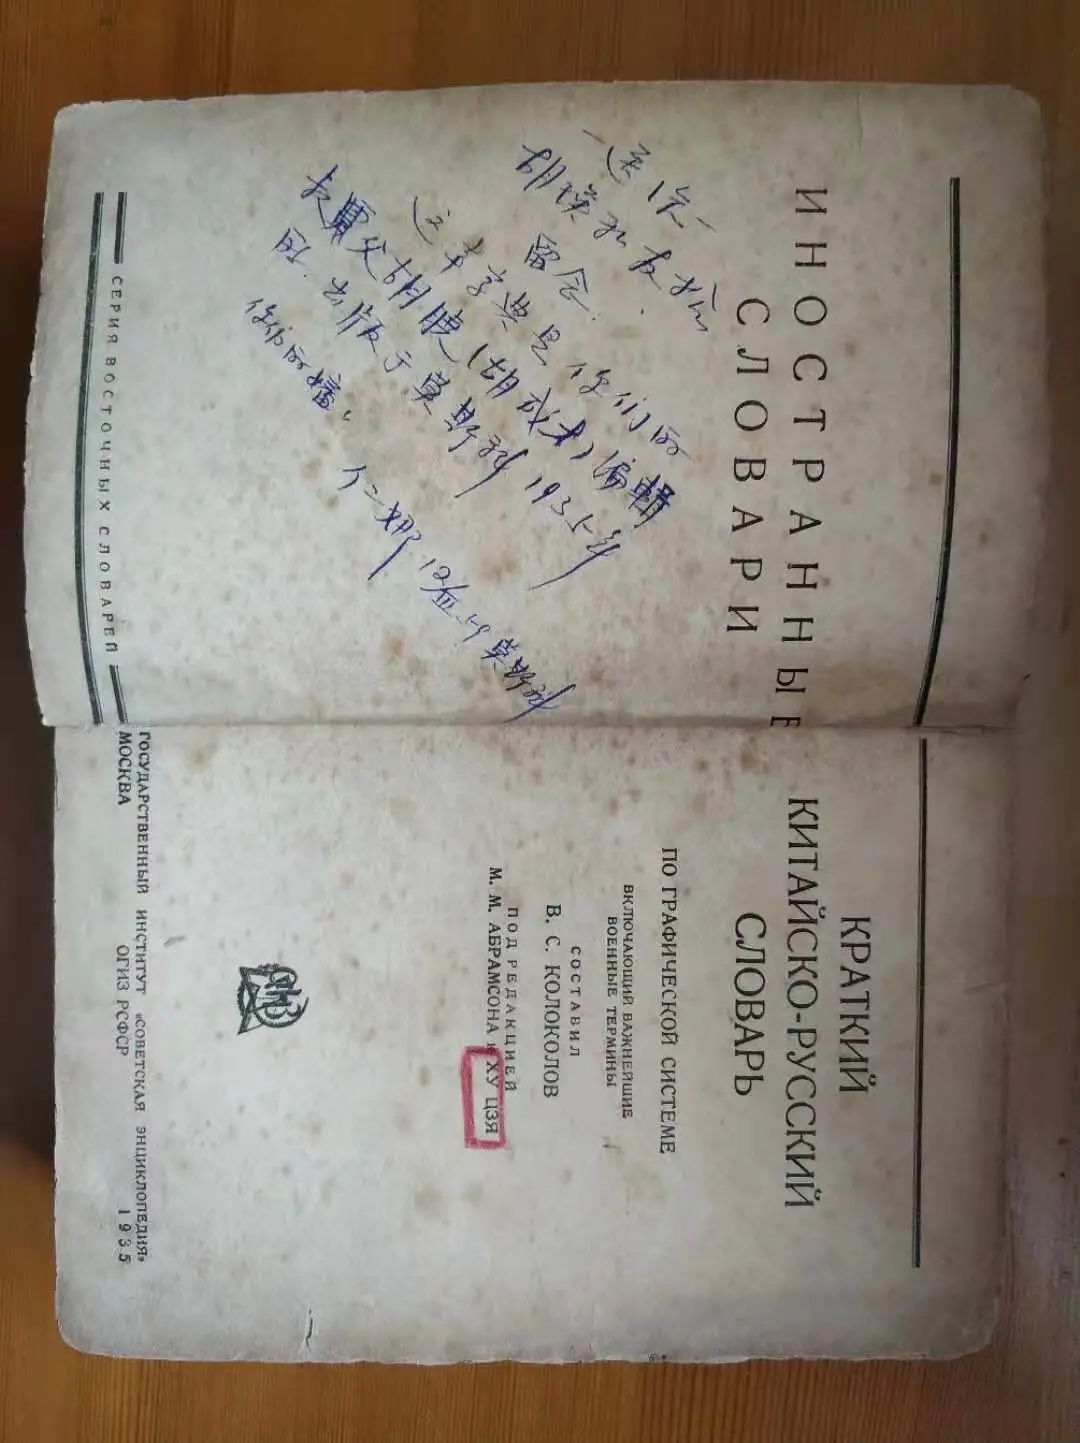 ИНОСТРАННЫЕ
СЛОВАРИ
送给
胡
留念
这本字典是你们的
父胡 (胡成才) 编辑
的. 出版于莫斯科 1935年
你们的
12/VII 59 莫斯科
СЕРИЯ ВОСТОЧНЫХ СЛОВАРЕЙ
КРАТКИЙ
КИТАЙСКО-РУССКИЙ
СЛОВАРЬ
ПО ГРАФИЧЕСКОЙ СИСТЕМЕ
ВКЛЮЧАЮЩИЙ ВАЖНЕЙШИЕ
ВОЕННЫЕ ТЕРМИНЫ
СОСТАВИЛ
В. С. КОЛОКОЛОВ
ПОД РЕДАКЦИЕЙ
М. М. АБРАМСОНА и ХУ ЦЗЯ
ОГИЗ
ГОСУДАРСТВЕННЫЙ ИНСТИТУТ «СОВЕТСКАЯ ЭНЦИКЛОПЕДИЯ»
МОСКВА ОГИЗ РСФСР 1935